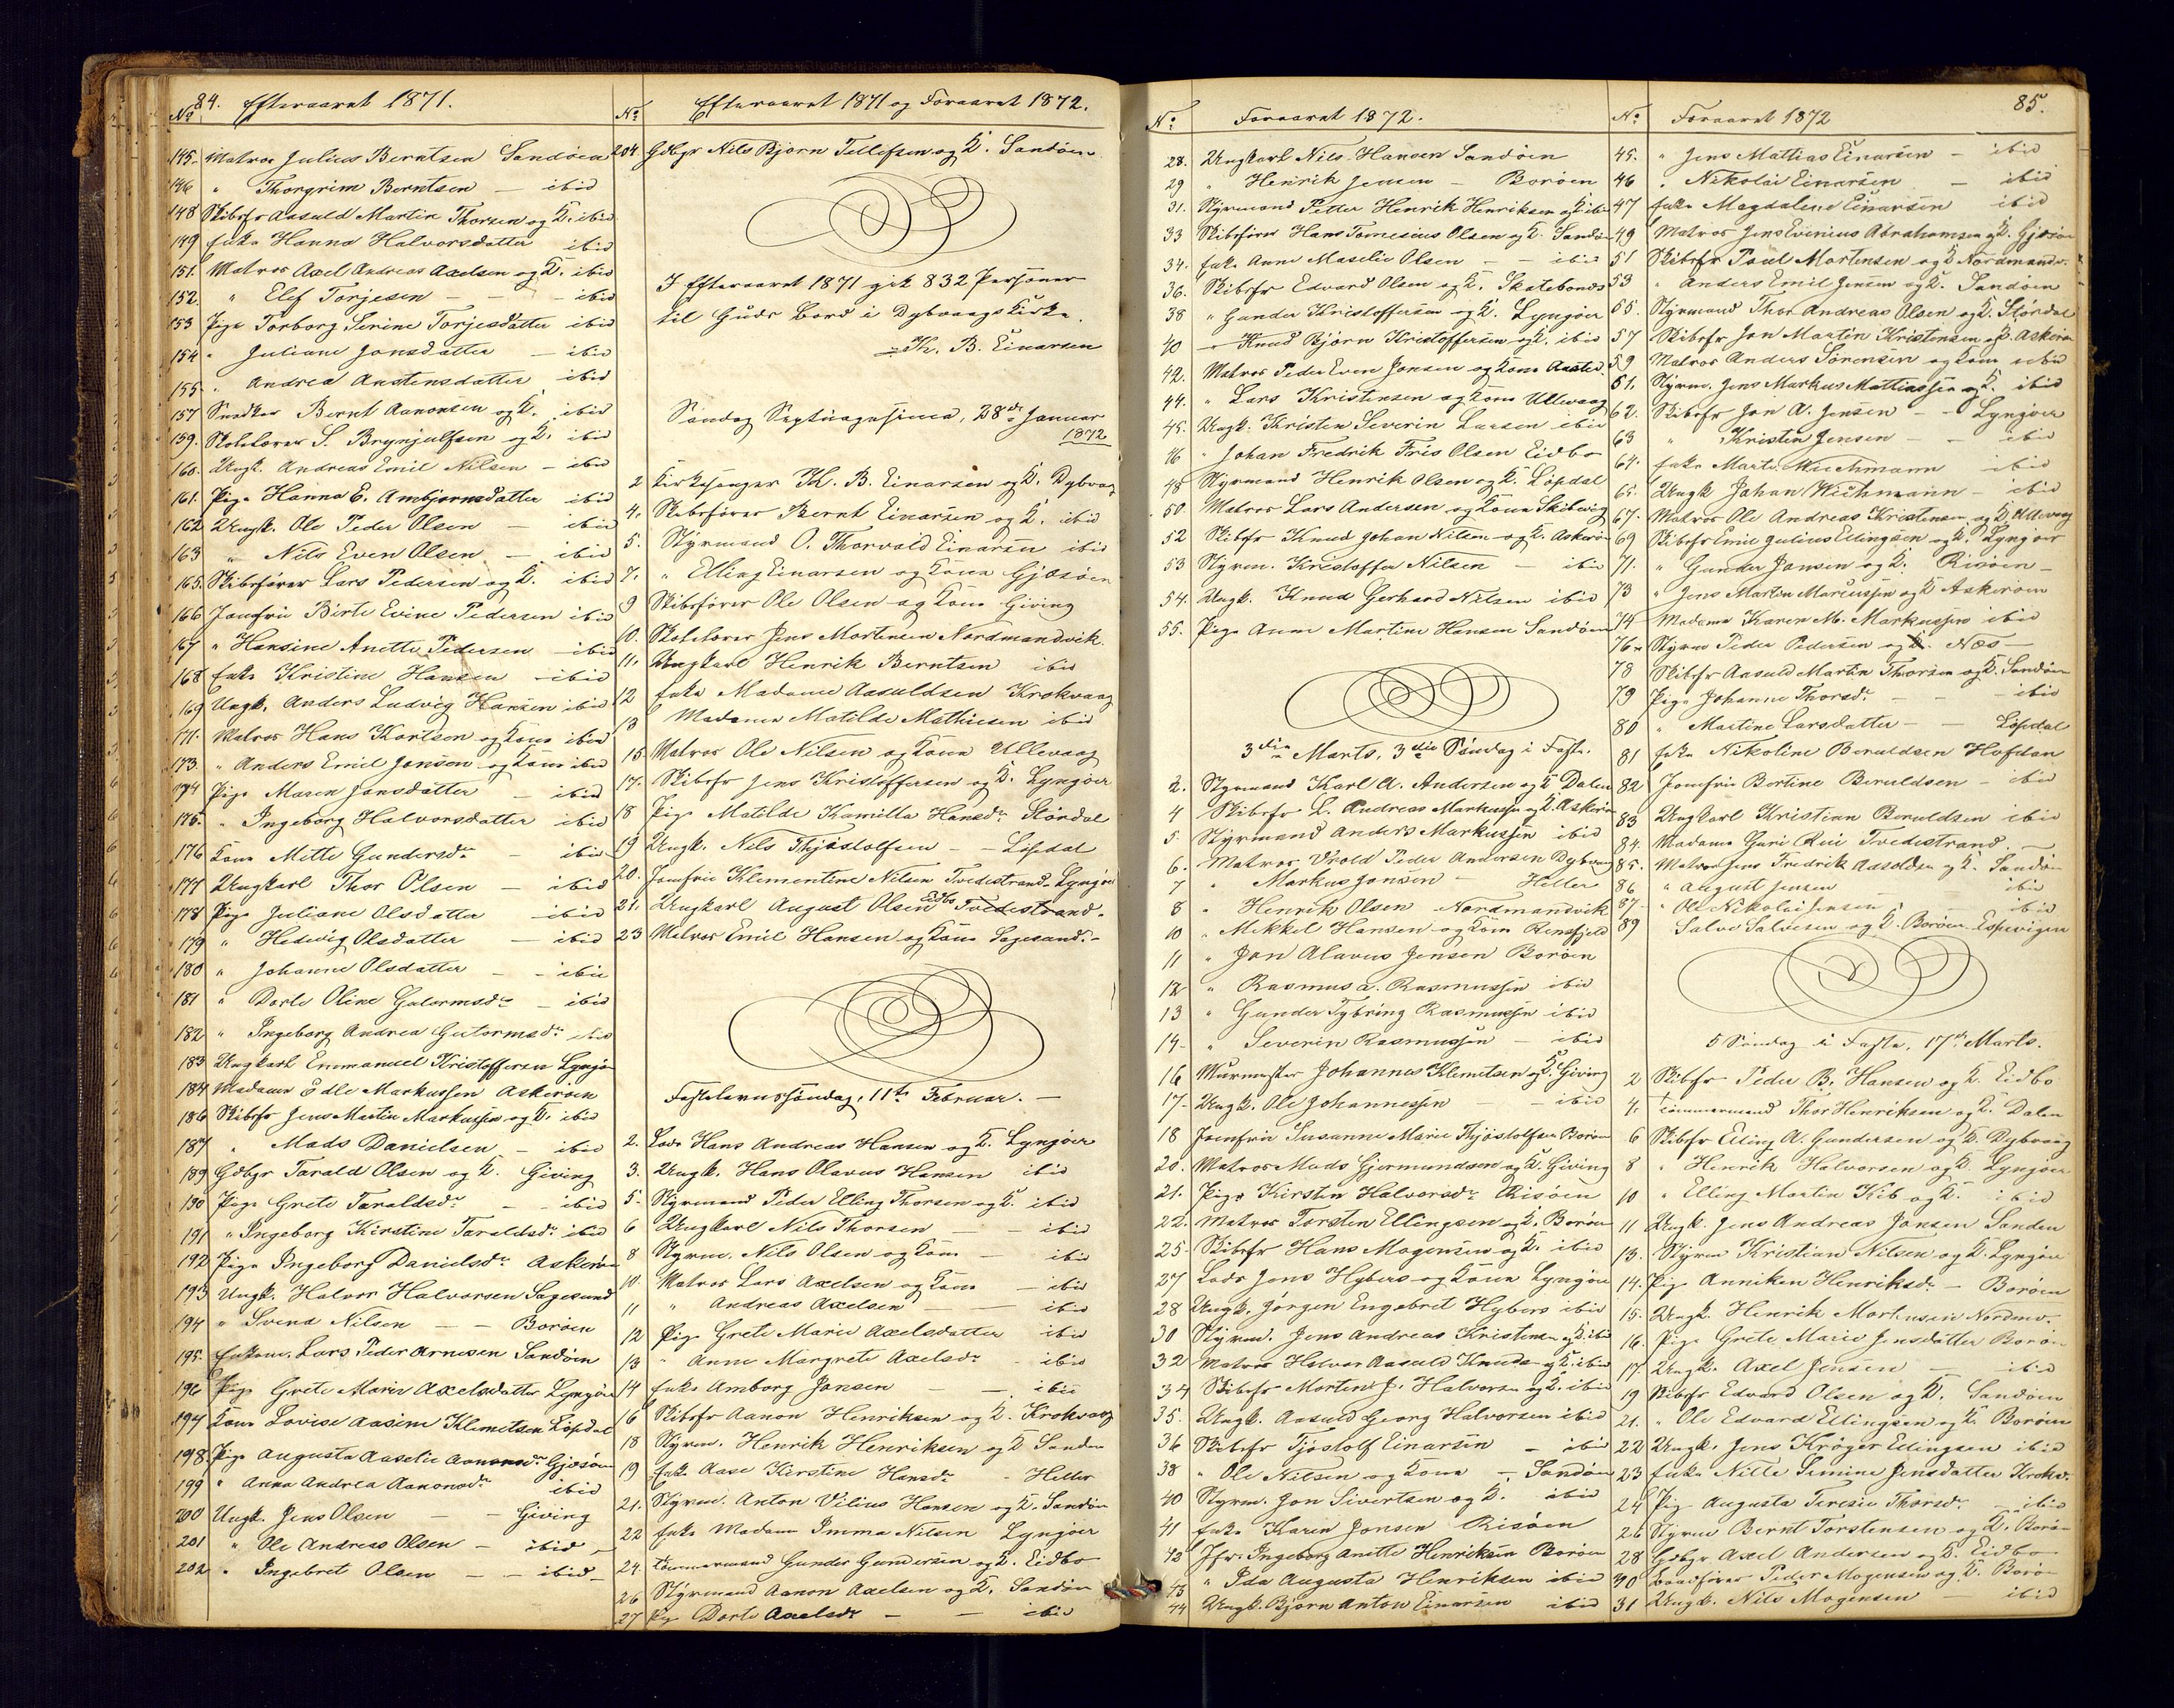 84. Efteraaret 1871.
No
145. Matros Julius Berntsen Sandöen
146 " Thorgrim Berntsen — ibid
148 Skibsfr Aasuld Martin Thorsen og K. ibid
149 Enke Hanna Halvorsdatter ibid
151. Matros Axel Andreas Axelsen og K. ibid
152. " Elef Torjesen — — ibid
153 Pige Torborg Serine Torjesdatter ibid
154 " Juliane Jonsdatter — ibid
155. " Andrea Anstensdatter ibid
157 Snedker Bernt Aanonsen og K. ibid
159. Skolelærer S. Brynjulfsen og K. ibid
160. Ungk. Andreas Emil Nilsen — ibid
161. Pige Hanna E. Ambjornsdatter ibid
162 Ungk. Ole Peder Olsen — ibid
163 " Nils Even Olsen — ibid
165. Skibsfører Lars Pedersen og K. ibid
166 Jomfru Birte Evine Pedersen ibid
167 " Hansine Anette Pedersen — ibid
168 Enke Kristine Hansen — ibid
169 Ungk. Anders Ludvig Hansen ibid
171. Matros Hans Kortsen og Kone ibid
173. " Anders Emil Jensen og Kone ibid
174 Pige Maren Jansdatter — ibid
175. " Ingeborg Halvorsdatter ibid
176 Kone Mette Gundersdr — ibid
177 Ungkarl Thor Olsen — ibid
178 Pige Juliane Olsdatter — ibid
179 " Hedevig Olsdatter — ibid
180 " Johanne Olsdatter — - ibid
181 " Dorte Oline Gutormsdr — ibid
182 " Ingeborg Andrea Gutormsdr ibid
183 Ungkarl Emmanuel Kristoffersen Lyngör
184 Madame Edle Markussen Askeröen
186 Skibsfr Jens Martin Markussen og K. ibid
187 " Mads Danielsen — ibid
189 Gdbgr Tarald Olsen og K. Giving
190 Pige Grete Taraldsdr — - ibid
191 " Ingeborg Kirstine Taraldsdr ibid
192 Pige Ingeborg Danielsdr Askeröen
193 Ungk. Halvor Halvorsen Sagesund
194 " Svend Nilsen — — Boröen
195. Enkem. Lars Peder Arnesen Sandöen
196 Pige Grete Marie Axelsdatter Lyngöer
197 Kone Lovise Aasine Klemetsen Löpdal
198. Pige Augusta Aaselie Aanonsdr Gjesöen
199 " Anna Andrea Aanonsdr ibid
200 Ungk. Jens Olsen — - Giving
201 " Ole Andreas Olsen — ibid
202 " Ingebret Olsen — — ibid
No Efteraaret 1871 og Foraaret 1872.
204 Gdbgr Nils Bjørn Tellefsen og K. Sandöen
I Efteraaret 1871 gik 832 Personer
til Guds Bord i Dybvaags Kirke.
Th. B. Einarsen
Søndag Septuagesima, 28de Januar
1872
2 Kirkesanger Th. B. Einarsen og K. Dybvaag
4. Skibsfører Bernt Einarsen og K. ibid
5. Styrmand O. Thorvald Einarsen ibid
7. " Elling Einarsen og Kone Gjesöen
9 Skibsfører Ole Olsen og Kone Giving
10. Skolelærer Jens Mortensen Nordmandvik
11. Ungkarl Henrik Berntsen ibid
12 Enke Madame Aasuldsen Krokvaag
13 Madame Matilde Mathiesen ibid
15 Matros Ole Nilsen og Kone Ullevaag
17. Skibsfr Jens Kristoffersen og K. Lyngöer
18 Pige Matilde Kamilla Hansdr Stördal
19 Ungk. Nils Thjöstolfsen — — Löpdal
20. Jomfru Klementine Nilsen Tvedestrand Lyngöer
21. Ungkarl August Olsen Eidbo Tvedestrand.
23 Matros Emil Hansen og Kone Sagesund. -
Fastelavnssöndag, 11te Februar. —
2. Lods Hans Andreas Hansen og K. Lyngöer
3. Ungk. Hans Olavus Hansen ibid
5. Styrmand Peder Elling Thorsen og K. ibid
6 Ungkarl Nils Thorsen — — ibid
8 Styrm. Nils Olsen og Kone — ibid
10. Matros Lars Axelsen og Kone — ibid
11 " Andreas Axelsen — ibid
12 Pige Grete Marie Axelsdatter ibid
13 " Anne Margrete Axelsdr - ibid
14 Enke Amborg Jonsen — — ibid
16 Skibsfr Aanon Henriksen og K. Krokvaag
18 Styrm. Henrik Henriksen og K Sanden
19 Enke Aase Kirstine Hansdr - Heller
21. Styrm. Anton Vilius Hansen og K. Sandöen
22 Enke Madam Imma Nilsen Lyngöer
24. Tömmermand Gunder Gundersen og K. Eidbo
26 Styrmand Aanon Axelsen og K. Sandöen
27 Pige Dorte Axelsdr — — ibid
No Foraaret 1872.
28. Ungkarl Nils Hansen Sandöen
29 " Henrik Jensen — Boröen
31. Styrmand Petter Henrik Henriksen og K ibid
33 Skibsfører Hans Tomesius Olsen og K. Sandöen
34. Enke Anne Maselie Olsen — — ibid
36. Skibsfr Edvard Olsen og K. Skatebonds
38 " Gunder Kristoffersen og K. Lyngöer
40 " Knud Bjørn Kristoffersen og K. ibid
42. Matros Peder Even Jonsen og Kone Aasted
44. " Lars Kristensen og Kone Ullevaag
45. Ungk. Kristen Severin Larsen ibid
46 " Johan Fredrik Friis Olsen Eidbo
48 Styrmand Henrik Olsen og K. Löpdal
50. Matros Lars Andersen og Kone Skibevig
52 Skibsfr Knud Johan Nilsen og K. Askeröen
53 Styrm. Kristoffer Nilsen — ibid
54. Ungk. Knud Gerhard Nilsen ibid
55. Pige Anne Martine Hansen Sandöen
3die Marts, 3die Söndag i Faste.
2. Styrmand Karl A. Andersen og K Dalen
4 Skibsfr L. Andreas Markussen og K. Askeröen
5 Styrmand Anders Markussen ibid
6. Matros Vrold Peder Andersen Dybvaag
7 " Markus Jonsen — Heller
8 " Henrik Olsen Nordmandvik
10 " Mikkel Hansen og Kone Rensfjeld
11 " Jon Alavus Jensen Boröen
12 " Rasmus A. Rasmussen ibid
13 " Gunder Tybring Rasmussen ibid
14 " Severin Rasmussen — ibid
16 Murmester Johannes Klemetsen og K. Giving
17 Ungk. Ole Johannessen — — ibid
18 Jomfru Susanne Marie Thjöstolfsen Boröen
20. Matros Mads Gjermundsen og K Giving
21. Pige Kirsten Halvorsdr Risöen
22. Matros Torsten Ellingsen og K. Boröen
25 Skibsfr Hans Mogensen og K. ibid
27 Lods Jens Hybers og Kone Lyngöer
28 Ungk. Jörgen Engebret Hybers ibid
30 Styrmd. Jens Andreas Kristensen og K. ibid
32 Matros Halvor Aasuld Knudsen og K. ibid
34 Skibsfr Morten J. Halvorsen og K. ibid
35. Ungk. Aasuld Georg Halvorsen ibid
36 Skibsfr Tjöstolf Einarsen — ibid
38 " Ole Nilsen og Kone — Sandöen
40 Styrm. Jon Sivertsen og K. ibid
41 Enke Karen Jonsen Risöen
42 Jfr. Ingeborg Anette Henriksen Boröen
43 " Ida Augusta Henriksen ibid
44 Ungk. Bjørn Anton Einarsen ibid
85.
No Foraaret 1872
45. " Jens Mattias Einarsen — ibid
46 " Nikolai Einarsen — ibid
47 Enke Magdalene Einarsen ibid
49 Matros Jens Evenius Abrahamsen og K. Gjesöen
51 Skibsfr Poul Mortensen og K Nordmandv.
53 " Anders Emil Jensen og K. Sandöen
55. Styrmand Thor Andreas Olsen og K. Stördal
57 Skibsfr Jon Martin Kristensen og K. Askeröen
59 Matros Anders Sörensen og Kone ibid
61. Styrm. Jens Markus Mattiassen og K. ibid
62. Skibsfr Jon A. Jensen — — Lyngöer
63 " Kristen Jensen — - ibid
64. Enke Marte Wiechmann ibid
65. Ungk Johan Wichmann — ibid
67. Matros Ole Andreas Kristensen og K Ullevaag
69 Skibsfr Emil Julius Ellingsen og K. Lyngöer
71. " Gunder Jansen og K. Risöen —
73 " Jens Martin Marcussen og K Askeröen
74 Madame Karen M. Markussen ibid
76 Styrm Peder Pedersen og K. Næs —
78 Skibsfr Aasuld Martin Thorsen og K. Sandöen
79 Pige Johanne Thorsdr — - ibid
80 " Martine Larsdatter — — Löpdal
81 Enke Nikoline Beruldsen Hofdan
82 Jomfru Bertine Beruldsen — ibid
83 Ungkarl Kristian Beruldsen ibid
84. Madame Guri Rui Tvedestrand. —
85. Matros Jens Fredrik Aasuldsen og K. Sandöen
86 " August Jensen ibid
87 " Ole Nikolai Jensen — ibid
89 Salve Salvesen og K. Boröen Espevigen
5 Söndag i Faste, 17de Marts.
2 Skibsfr Peder B. Hansen og K. Eidbo
4. Tömmermand Thor Henriksen og K. Dalen
6 Skibsfr Elling A. Gundersen og K. Dybvaag
8 " Henrik Halvorsen og K. Lyngöer
10 " Elling Martin Kib og K. ibid
11 Ungk. Jens Andreas Jonsen Sanden
13. Styrm Kristian Nilsen og K. Lyngöer
14. Pige Anniken Henriksdr — Boröen
15. Ungk. Henrik Mortensen Nordmv.
16. Pige Grete Marie Jensdatter Boröen
17. Ungk. Axel Jensen — ibid
19 Skibsfr Edvard Olsen og K. Sandöen
21. " Ole Edvard Ellingsen og K. Boröen
22 Ungk. Jens Kröger Ellingsen ibid
23 Enke Nille Simine Jensdatter Krokv.
24 Pige Augusta Teresie Thorsdr — ibid
26 Styrm Bernt Torstensen og K. Boröen
28 Gdbgr. Axel Andersen og K. Eidbo
30 Baadfører Peder Mogensen og K. Boröen
31 Ungk. Nils Mogensen — ibid